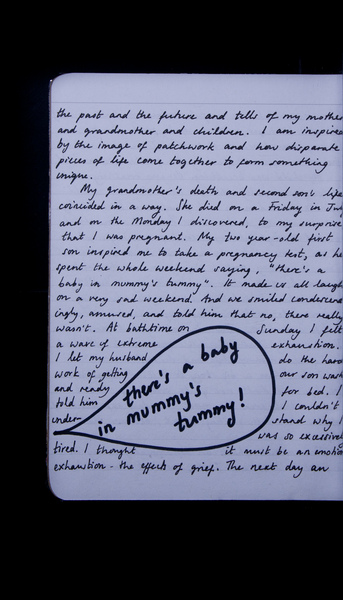 the past and the future and tells of my mother
and grandmother and children. I am inspired
by the image of patchwork and how disparate
pieces of life come together to form something
unique.
My grandmother's death and second son's life
coincided in a way. She died on a Friday in July
and on the Monday I discovered, to my surprise
that I was pregnant. My two year-old first
son inspired me to take a pregnancy test, as he
spent the whole weekend saying, "there's a
baby in mummy's tummy". It made us all laugh
on a very sad weekend. And we smiled condescend
ingly, amused, and told him that no, there really
wasn't. At bathtime on Sunday I felt
a wave of extreme exhaustion.
I let my husband do the hard
work of getting our son wash
and ready for bed. I
told him I couldn't
under stand why I
was so excessively
tired. I thought it must be an emotion
exhaustion - the effects of grief. The next day an
there's a baby
in mummy's
tummy!